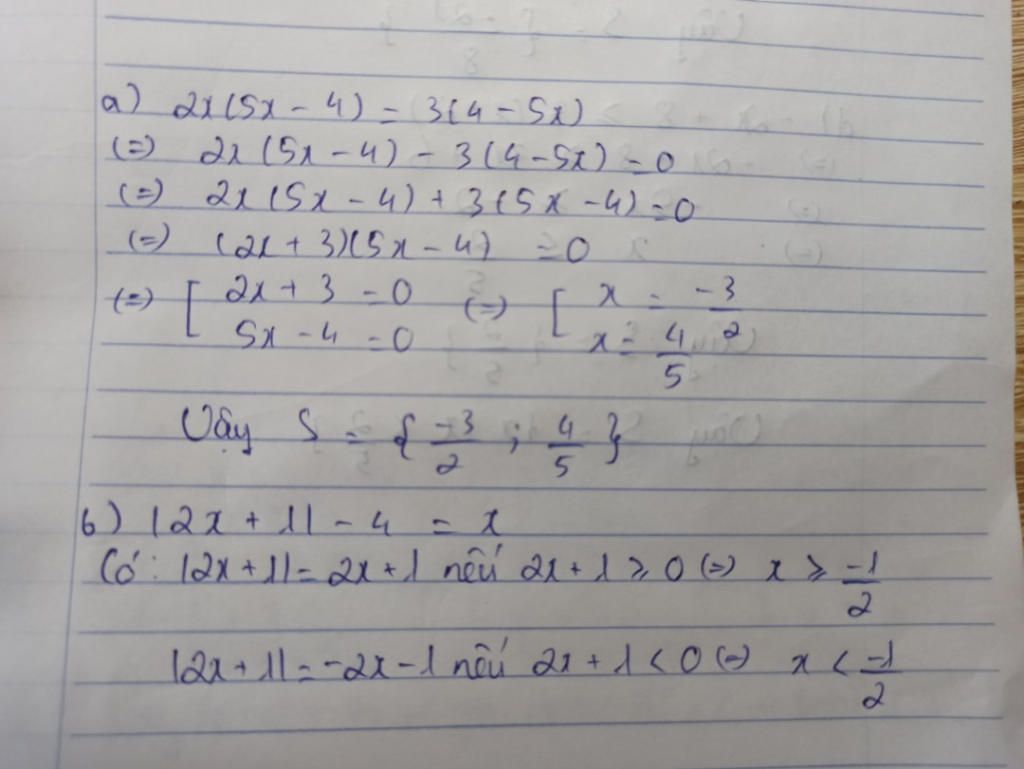 a) 2x(5x - 4) = 3(4 - 5x)
(=) 2x(5x - 4) - 3(4 - 5x) = 0
(=) 2x(5x - 4) + 3(5x - 4) = 0
(=) (2x + 3)(5x - 4) = 0
(=) [ 2x + 3 = 0 (=) [ x = -3/2
5x - 4 = 0 x = 4/5
Vậy S = { -3/2 ; 4/5 }
b) |2x + 1| - 4 = x
Có: |2x + 1| = 2x + 1 nếu 2x + 1 ≥ 0 (=) x ≥ -1/2
|2x + 1| = -2x - 1 nếu 2x + 1 < 0 (=) x < -1/2